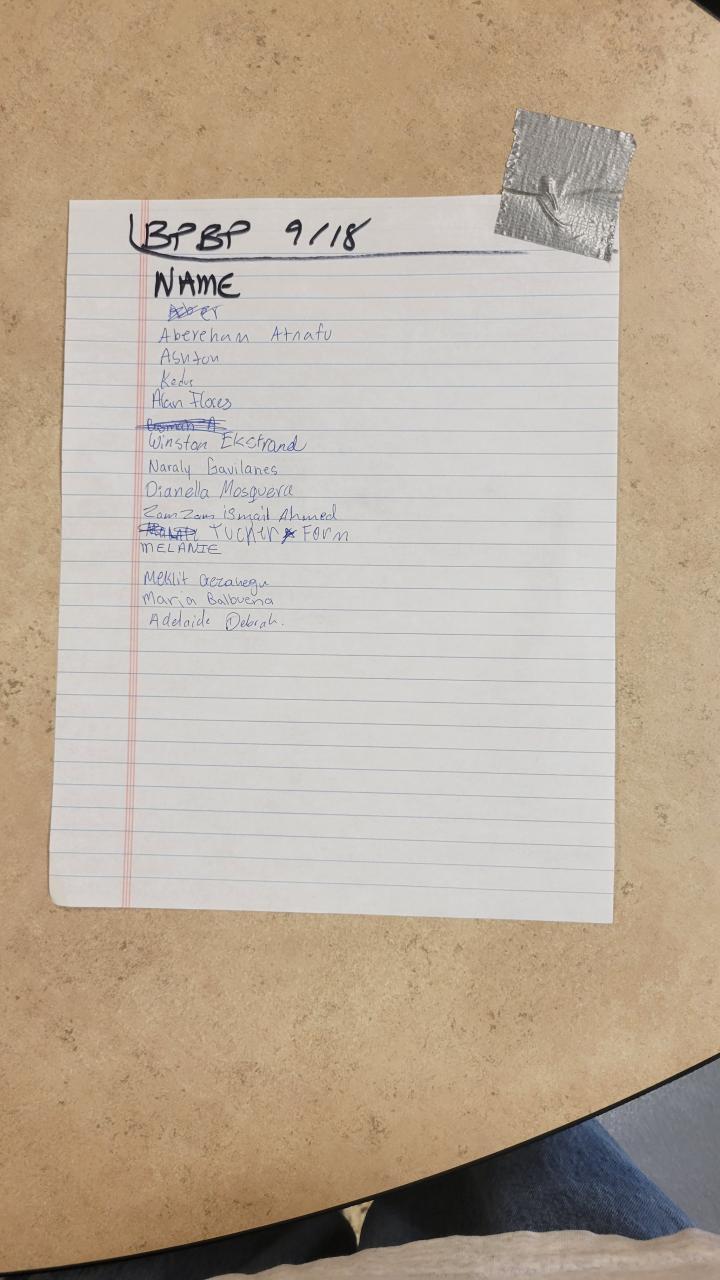 BPBP 9/18
NAME
Abereham Atnafu
Ashton
Kedus
Alan Flores
Winston Ekstrand
Naraly Gavilanes
Dianella Mosquera
Zam Zam ismail Ahmed
Tucker Form
MELANIE
Meklit Gezahegn
Maria Balbuena
Adelaide Debrah.